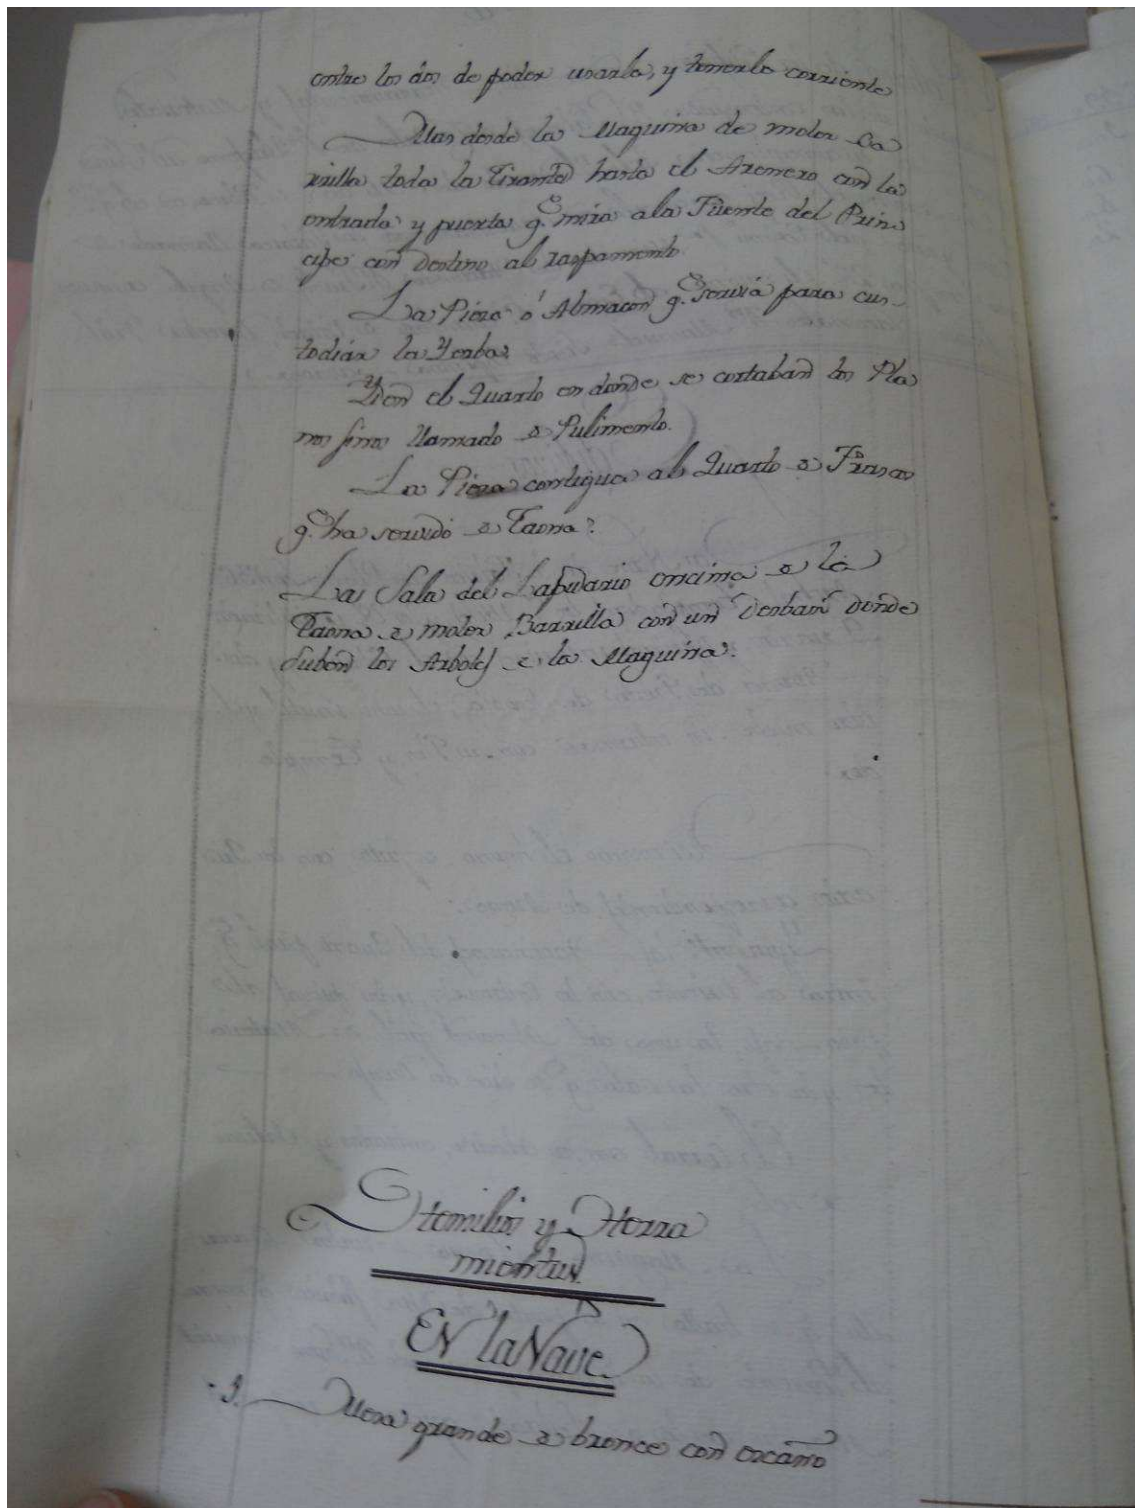 entre los dos de poder usarla, y tenerla corriente
Mas desde la Maquina de moler Ba
rrilla toda la Tirantez hasta el Arenero con la
entrada y puerta q.e mira a la Fuente del Prin
cipe con destino al raspamento.
La Pieza ó Almacen q.e servia para cus
todiar la Yerba.
Yden el Quarto en donde se cortaban los Pla
nos finos llamado de Pulimento.
La Pieza contigua al Quarto de Frascas
q.e ha servido de Taona.
La Sala del Lapidario encima de la
Taona de moler Barrilla con un Desban donde
suben los Arboles de la Maquina.
Utensilios y Herra
mientas.
EN la Nave.
Mesa grande de bronce con